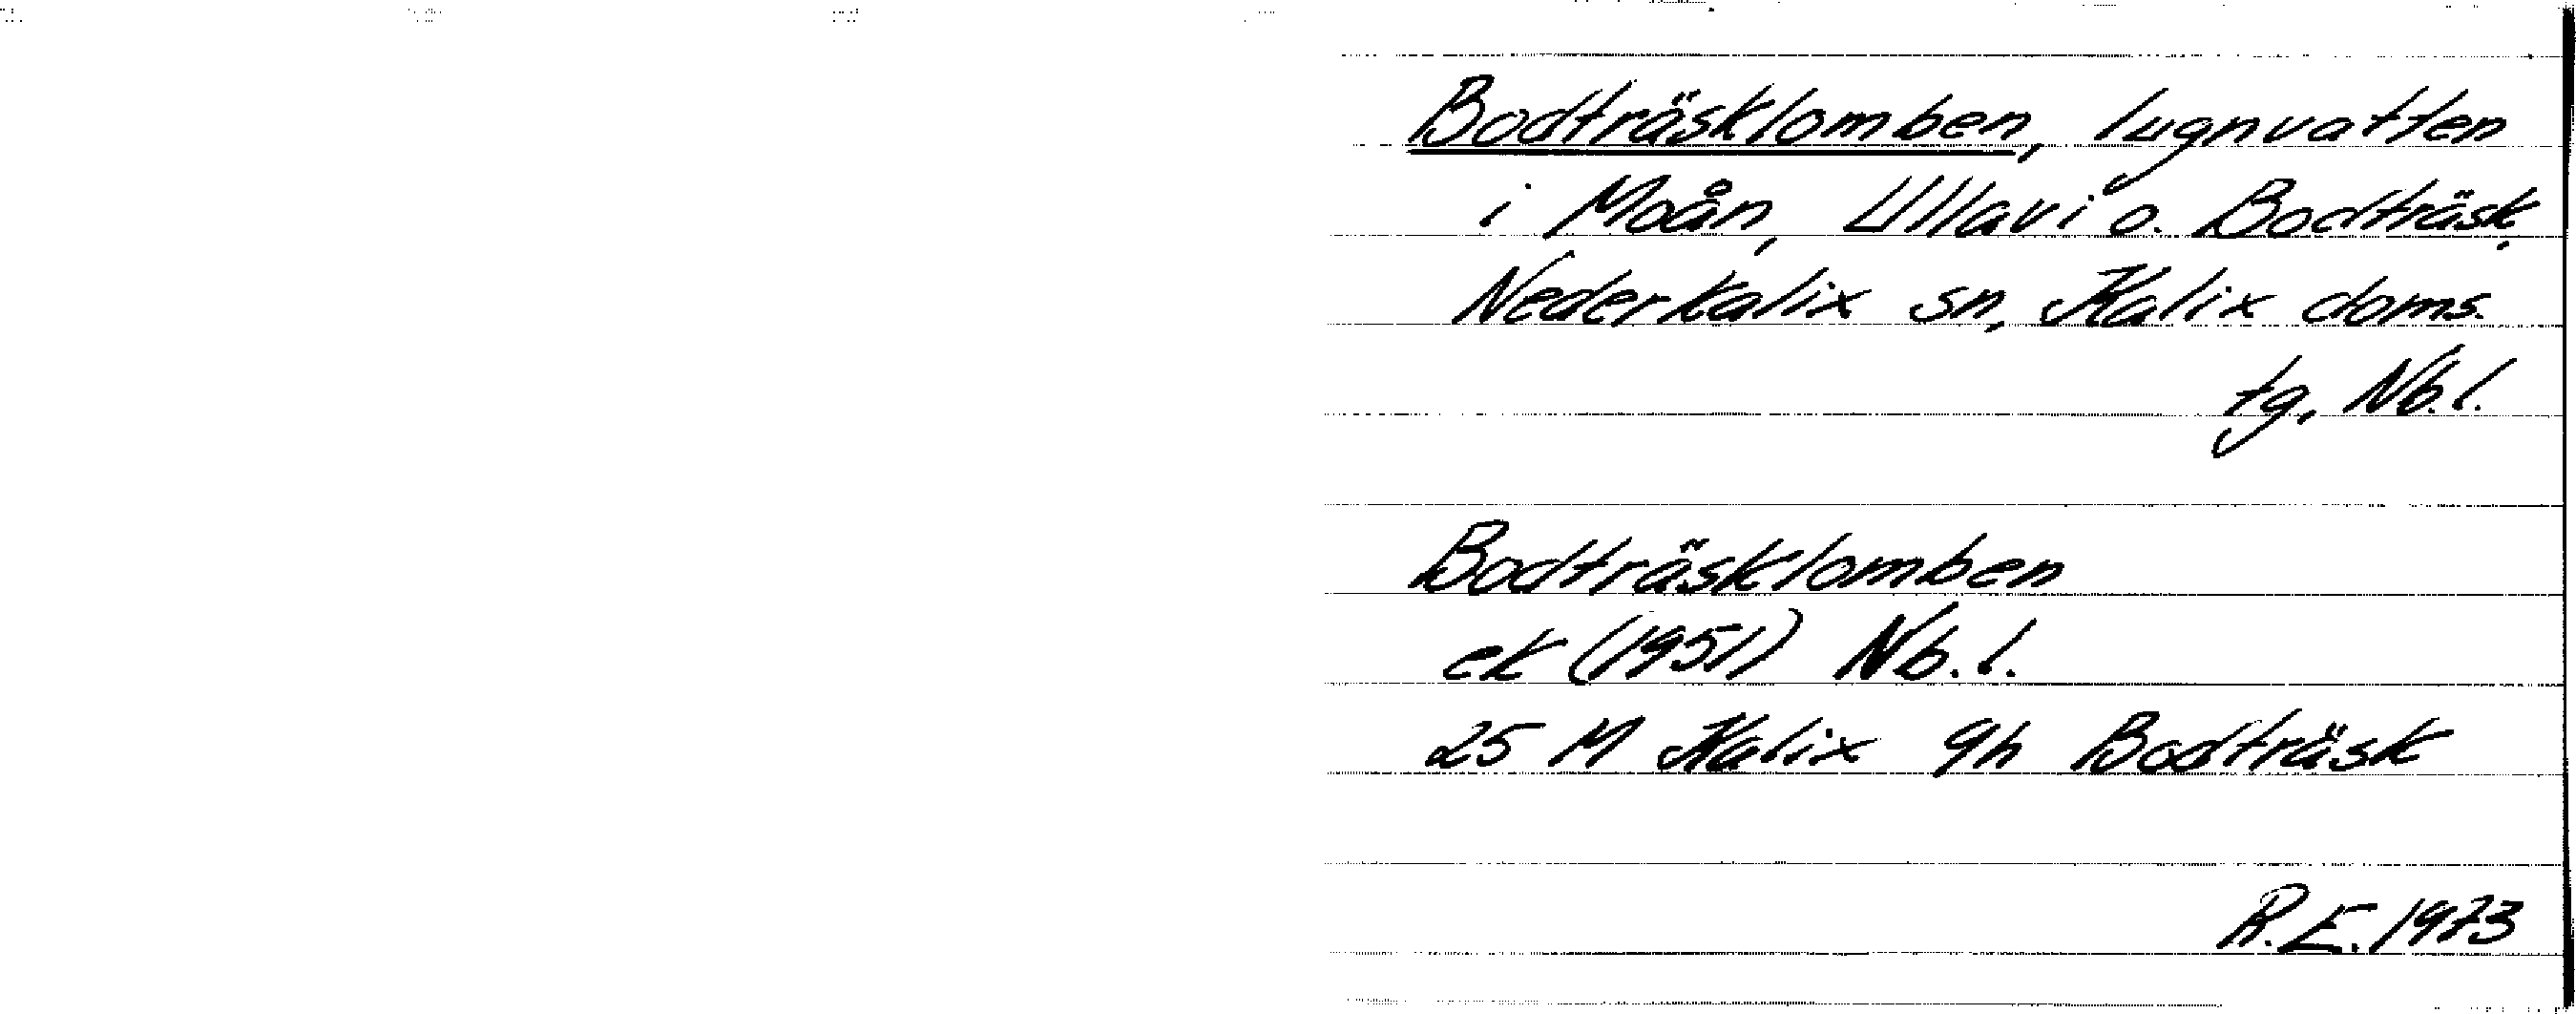 Bodträsklomben, lugnvatten
i Moån, Ullavi o. Bodträsk,
Nederkalix sn, Kalix doms.
tg, Nb.l.
Bodträsklomben
ek (1951) Nb.l.
25 M Kalix 9h Bodträsk
R.E. 1973